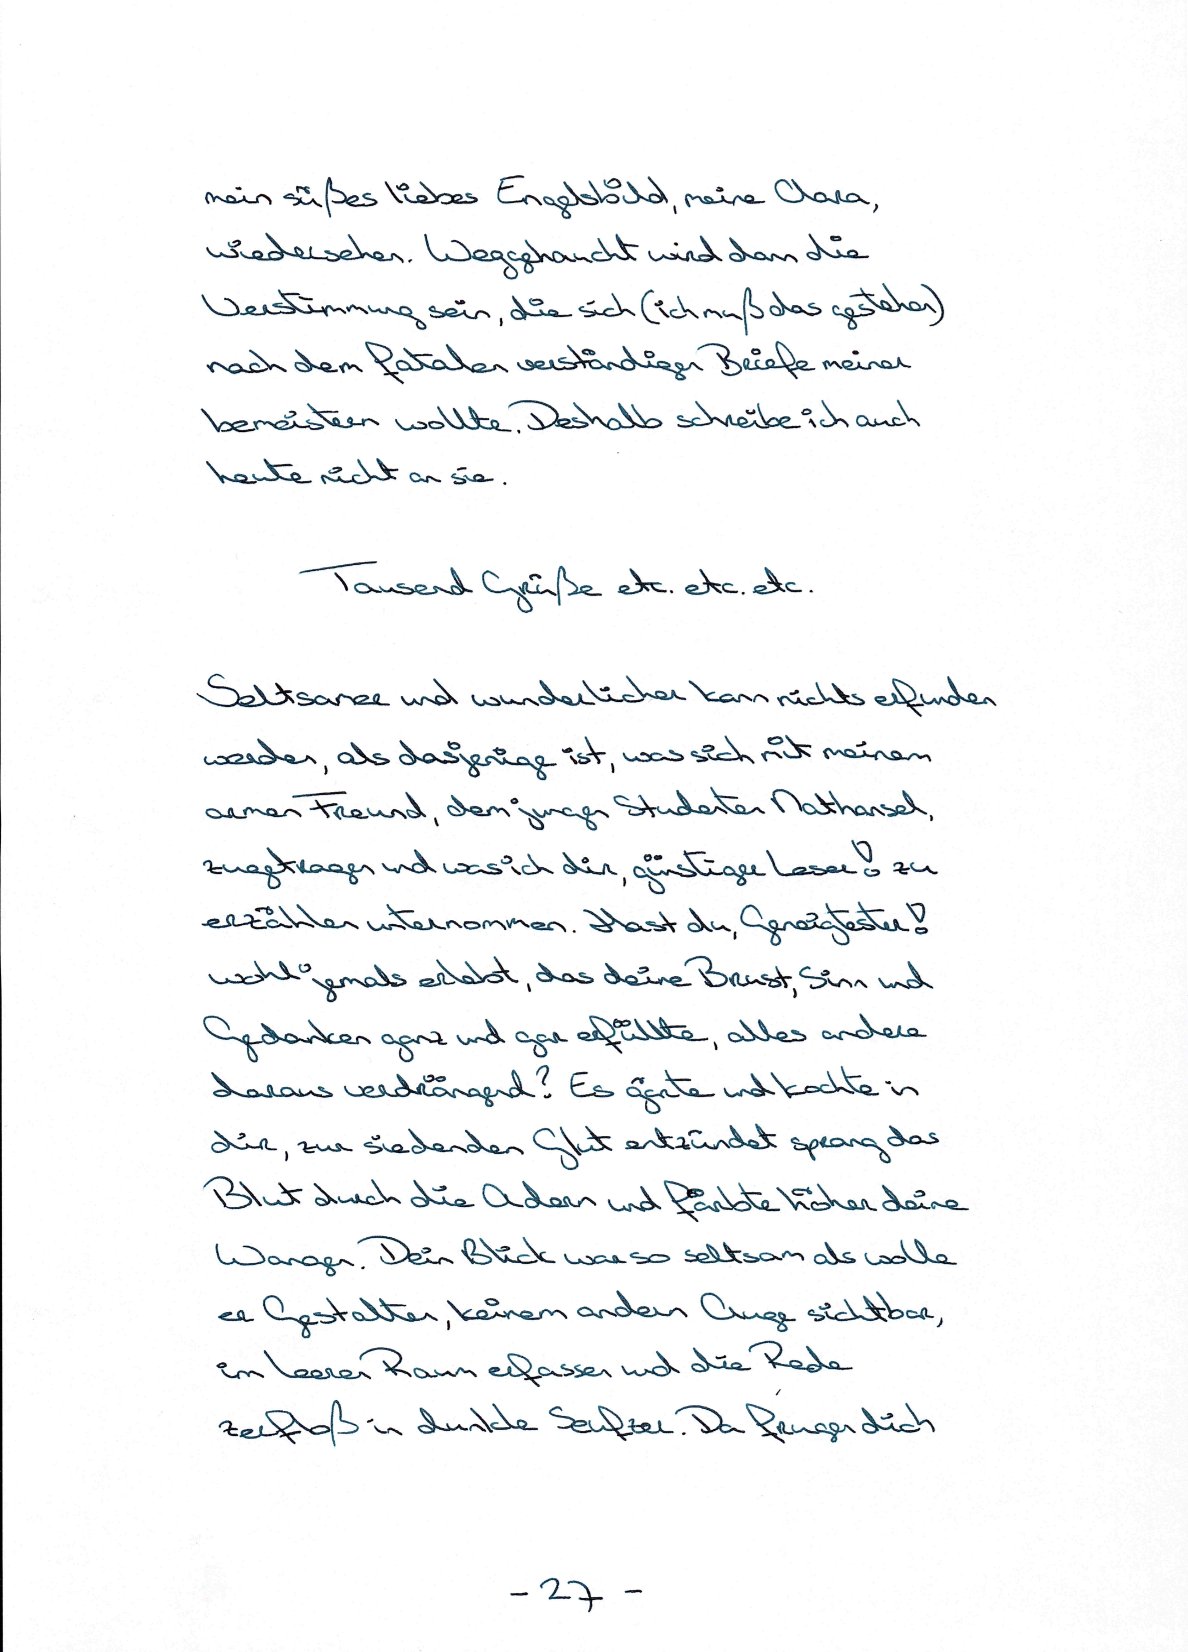 mein süßes liebes Engelsbild, meine Clara,
wiedersehen. Weggehaucht wird dann die
Verstimmung sein, die sich (ich muß das gestehen)
nach dem fatalen verständigen Briefe meiner
bemeistern wollte. Deshalb schreibe ich auch
heute nicht an sie.
Tausend Grüße etc. etc. etc.
Seltsamer und wunderlicher kann nichts erfunden
werden, als dasjenige ist, was sich mit meinem
armen Freund, dem jungen Studenten Nathanael,
zugetragen und was ich dir, günstiger Leser! zu
erzählen unternommen. Hast du, Geneigtester!
wohl jemals erlebt, das deine Brust, Sinn und
Gedanken ganz und gar erfüllte, alles andere
daraus verdrängend? Es gärte und kochte in
dir, zur siedenden Glut entzündet sprang das
Blut durch die Adern und färbte höher deine
Wangen. Dein Blick war so seltsam als wolle
er Gestalten, keinem andern Auge sichtbar,
im leeren Raum erfassen und die Rede
zerfloß in dunkle Seufzer. Da frugen dich
- 27 -